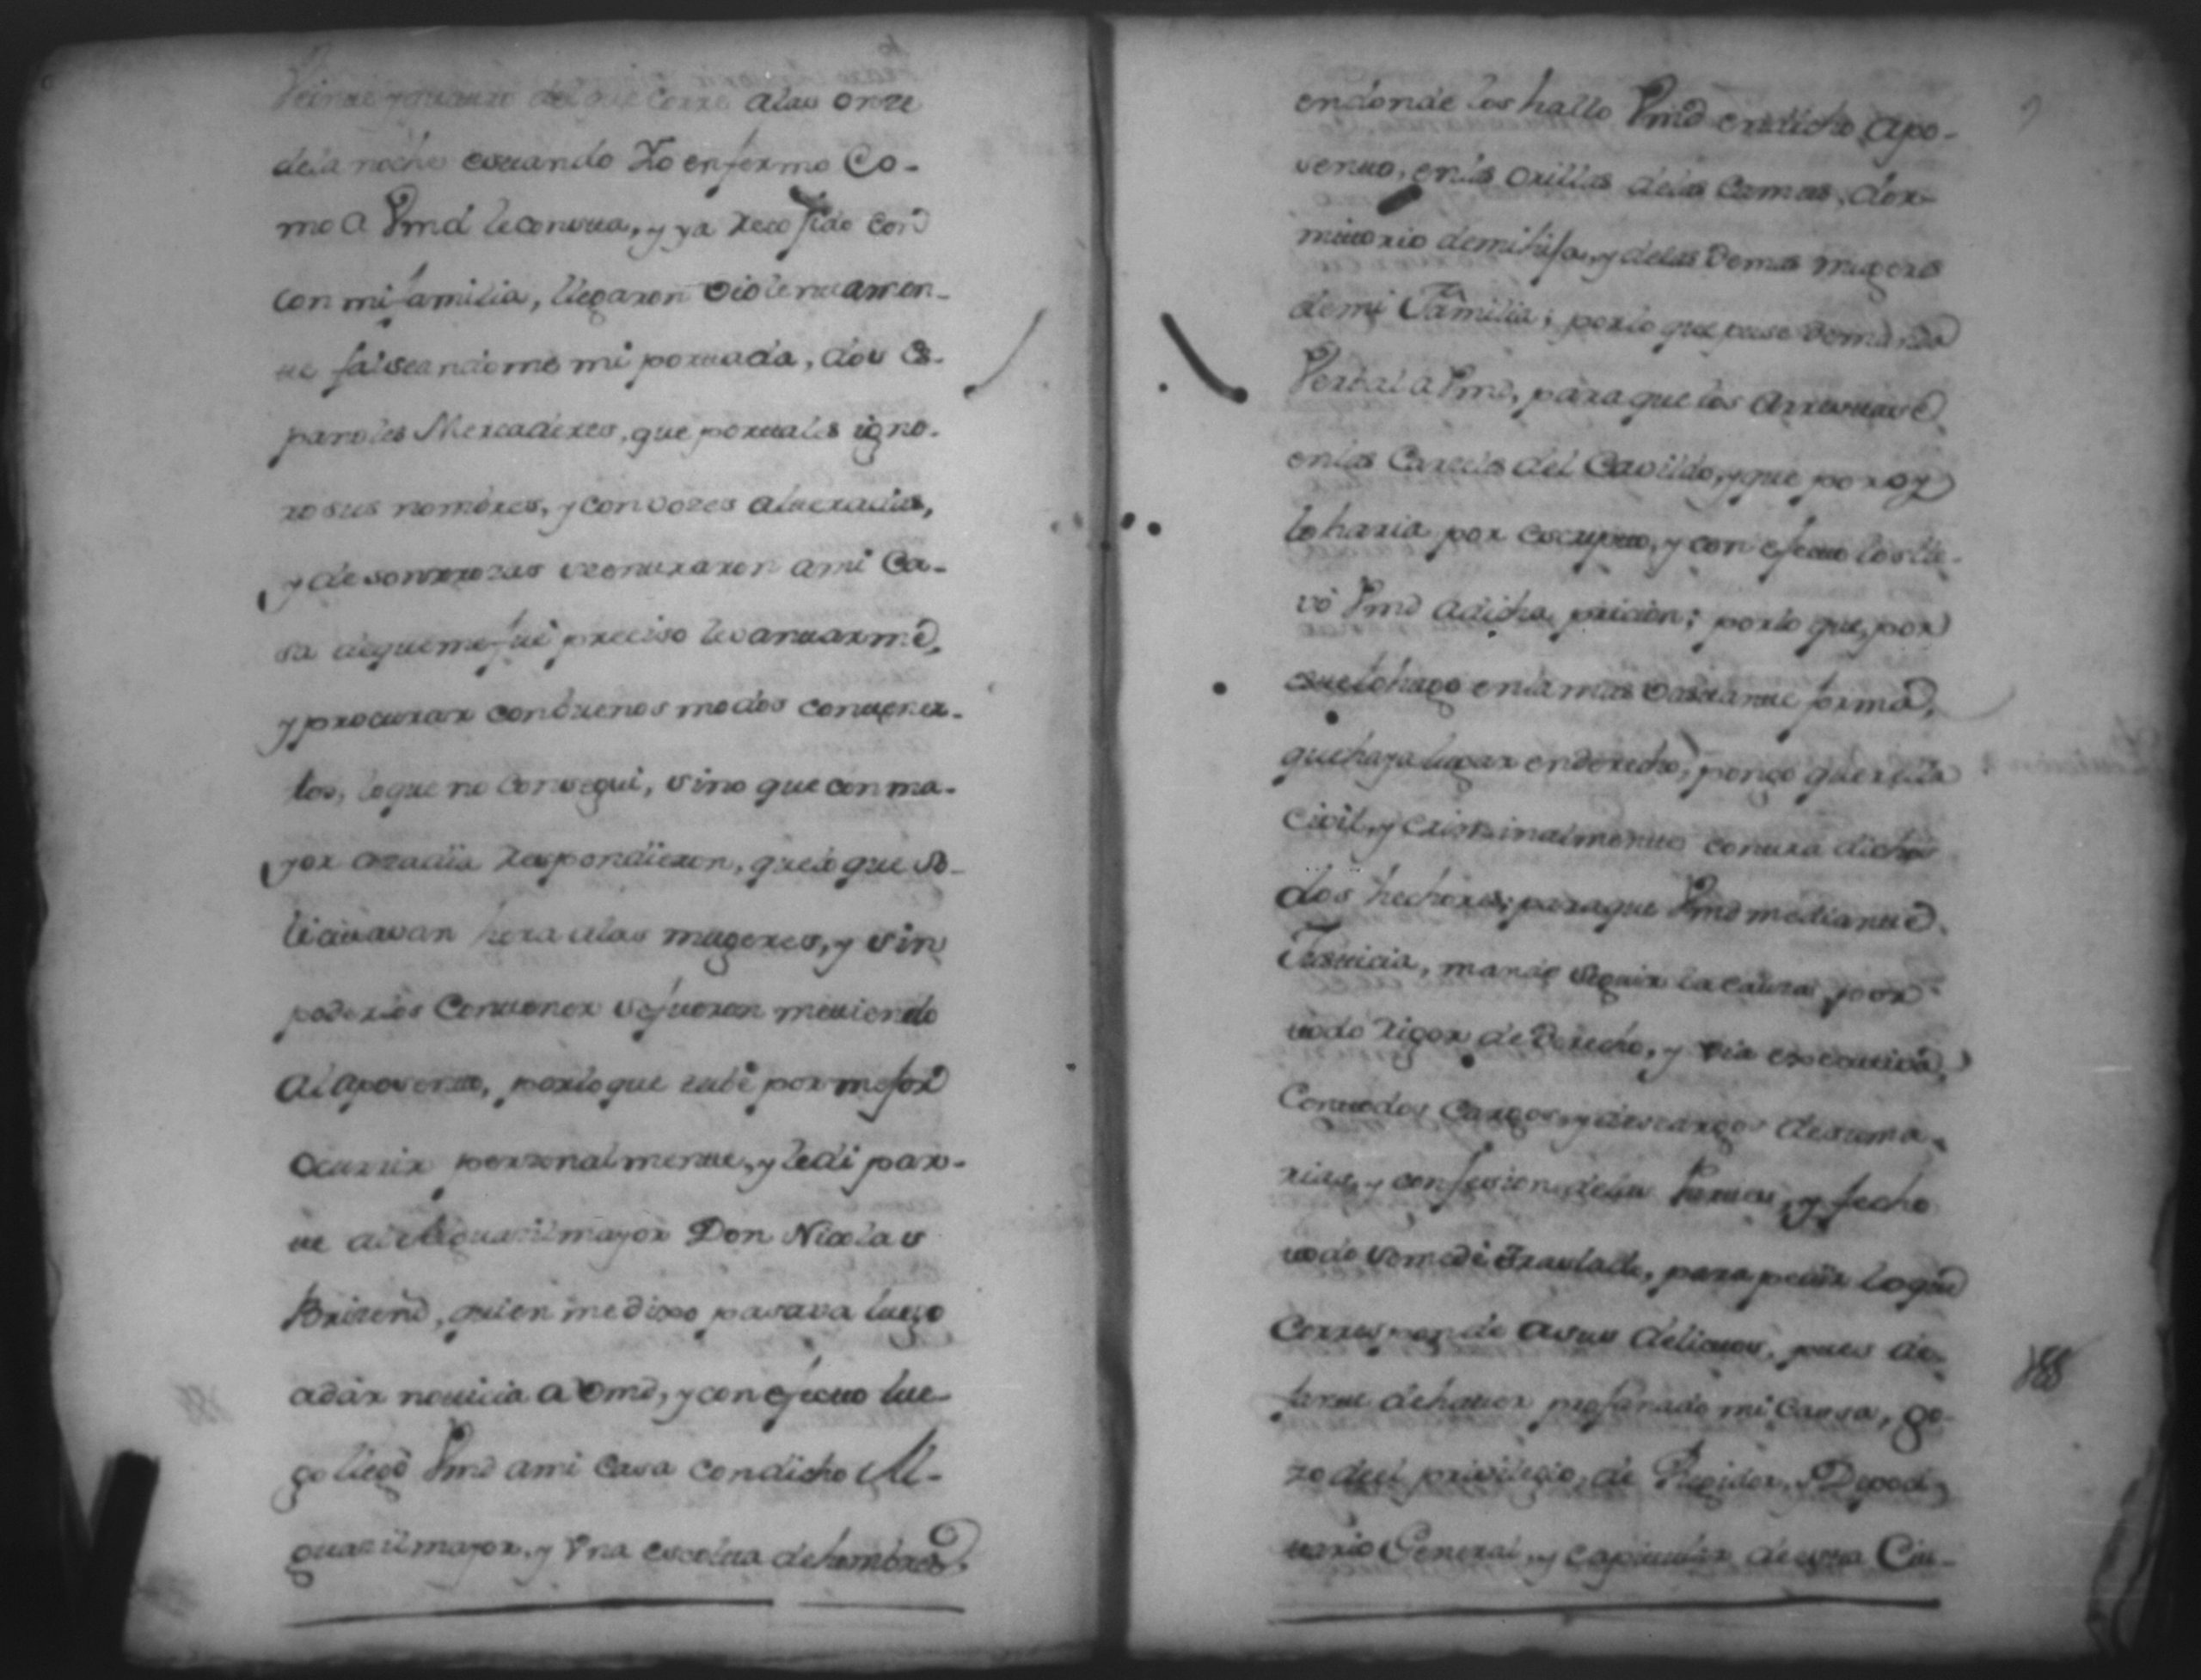 Veinte y quatro del que corre alas onze
dela noche estando Yo enfermo Co-
mo a Vmd le consta, y ya recojido con
con mi familia, llegaron violentamen-
te falseandome mi portada, dos Es-
pañoles Mercaderes, que portales igno-
ro sus nombres, y con vozes alteradas,
y desonrrozas se entraron ami Ca-
sa deque me fue preciso levantarme,
y procurar conbuenos modos contener-
los, loque no Consegui, sino que con ma-
yor ozadia respondieron, que lo que so-
licitavan hera alas mugeres, y sin
poderlos Contener se fueron metiendo
al aposento, porloque tube por mejor
Ocurrir personalmente, y le di par-
te al Alguazil mayor Don Nicolas
Brizeño, quien me dixo pasava luego
adar noticia a Vmd, y con efecto lue-
go llegó Vmd ami Casa con dicho Al-
guazil mayor, y Vna escolta de hombres.
endonde los hallo Vmd en dicho apo-
sento, en las orillas delas Camas, dor-
mitorio demi hija, y delas demas mugeres
demi Familia; porlo que puse demanda
Verbal a Vmd, para que los arrestase
en las Carzeles del Cavildo, y que por oy
lo haria por escripto, y con efecto los lle-
vó Vmd adicha pricion; porlo que, por
este lo hago en la mas bastante forma,
que haya lugar en derecho, pongo querella
Civil, y Criminalmente contra dichos
dos hechores; para que Vmd mediante
Justicia, mande seguir la causa por
todo rigor de Derecho, y via executiva,
Contodos Cargos, y descargos de suma-
rias, y confesion dela parte, y fecho
todo se me dé traslado, para pedir loque
Corresponde asus delictos, pues de-
lante dehaver profanado mi Cassa, go-
zo del privilegio, de Regidor, Deposi-
tario General, y capitular de esta Ciu-
188